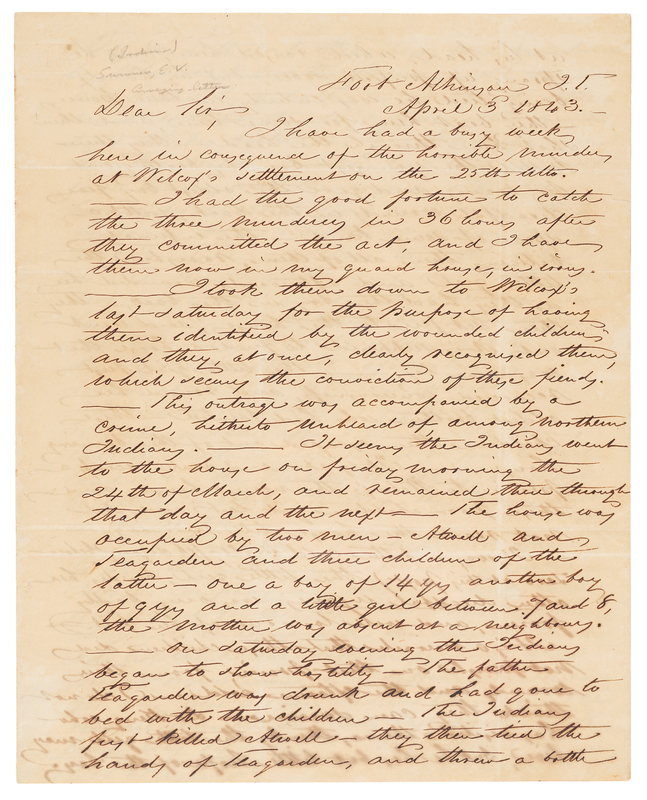 (Indians)
Sumner, E. V.
Fort Atkinson I. T.
Dear Sir, April 3 1843. —
I have had a busy week
here in consequence of the horrible murders
at Wilcox's settlement on the 25th ulto.
— I had the good fortune to catch
the three murderers in 36 hours after
they committed the act, and I have
them now in my guard house, in irons.
— I took them down to Wilcox's
last Saturday for the purpose of having
them identified by the wounded children
and they, at once, clearly recognised them,
which secures the conviction of these fiends.
— This outrage was accompanied by a
crime, hitherto unheard of among northern
Indians. — It seems the Indians went
to the house on friday morning the
24th of March, and remained there through
that day and the next — The house was
occupied by two men — Atwell and
Teagarden and three children of the
latter — one a boy of 14 yrs another boy
of 9 yrs and a little girl between 7 and 8,
the mother was absent at a neighbours.
— On Saturday evening the Indians
began to show hostility — The father
Teagarden was drunk and had gone to
bed with the children — The Indians
first killed Atwell — they then tied the
hands of Teagarden, and threw a bottle